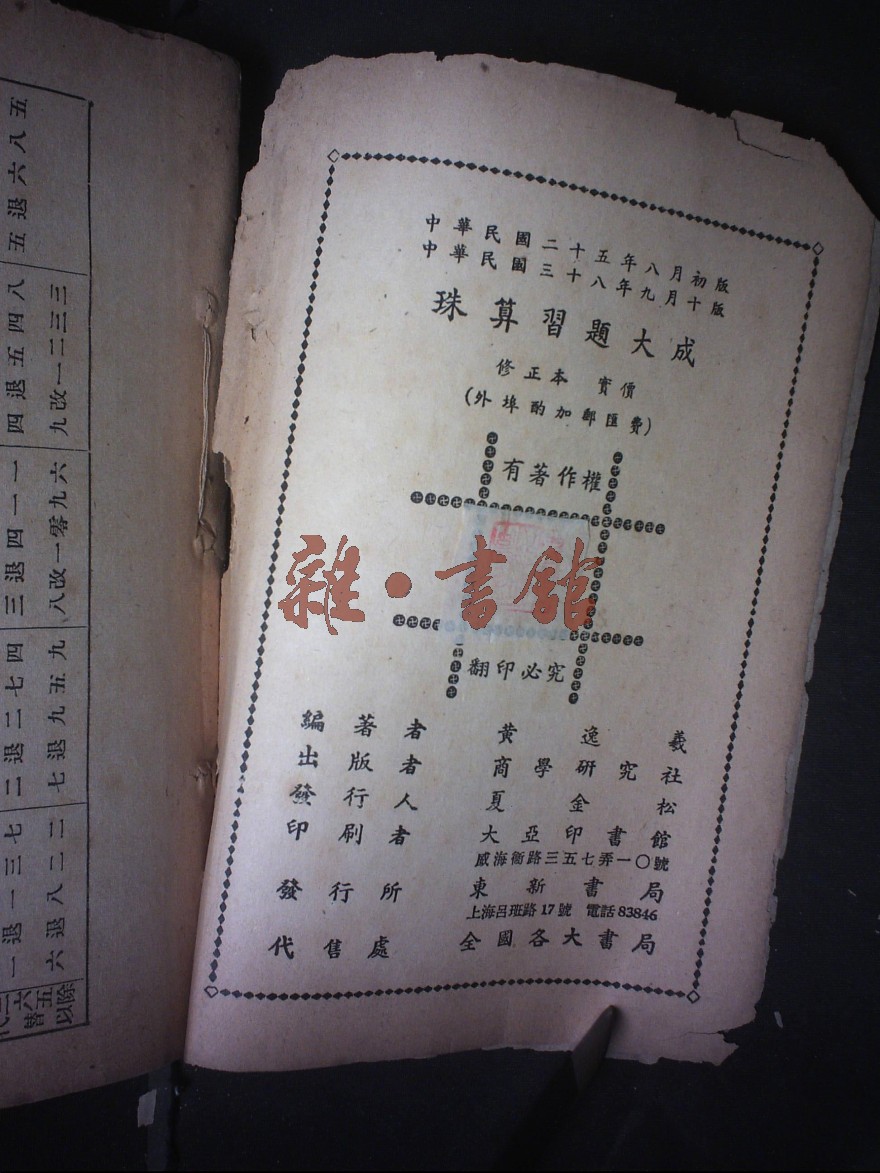 中華民國二十五年八月初版
中華民國三十八年九月十版
珠算習題大成
修正本 實價
(外埠酌加郵匯費)
有著作權
雜·書館
翻印必究
編著者 黃逸羲
出版者 商學研究社
發行人 夏金松
印刷者 大亞印書館
威海衞路三五七弄一〇號
發行所 東新書局
上海呂班路17號 電話83846
代售處 全國各大書局
一退一三七 二退二七四 三退四一一 四退五四八 五退六八五
六退八二二 七退九五九 八改一零九六 九改一二三三